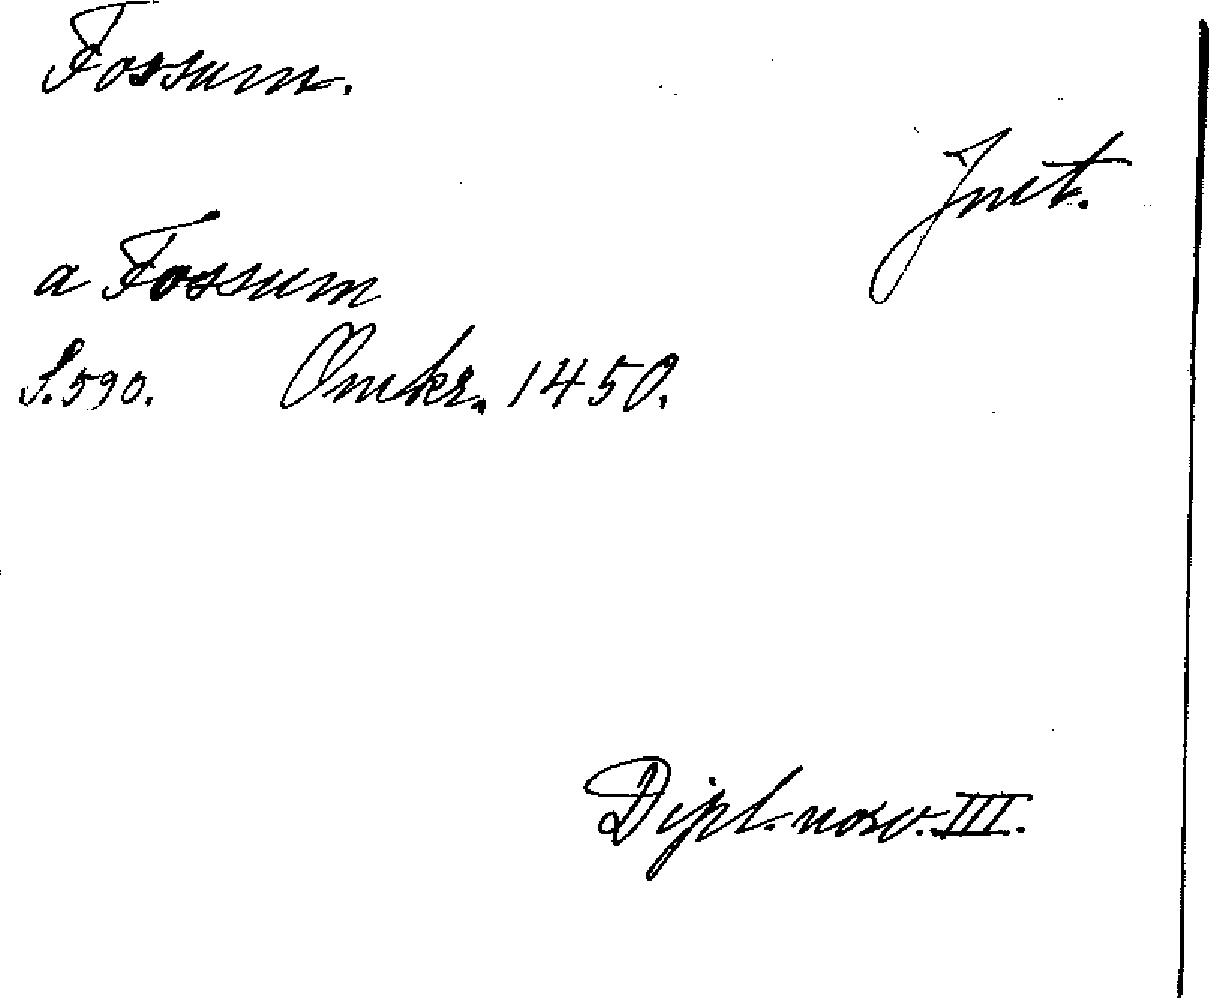 Fossum.
Jnct.
a Fossum
S. 590. Omkr. 1450.
Dipl. norv. III.